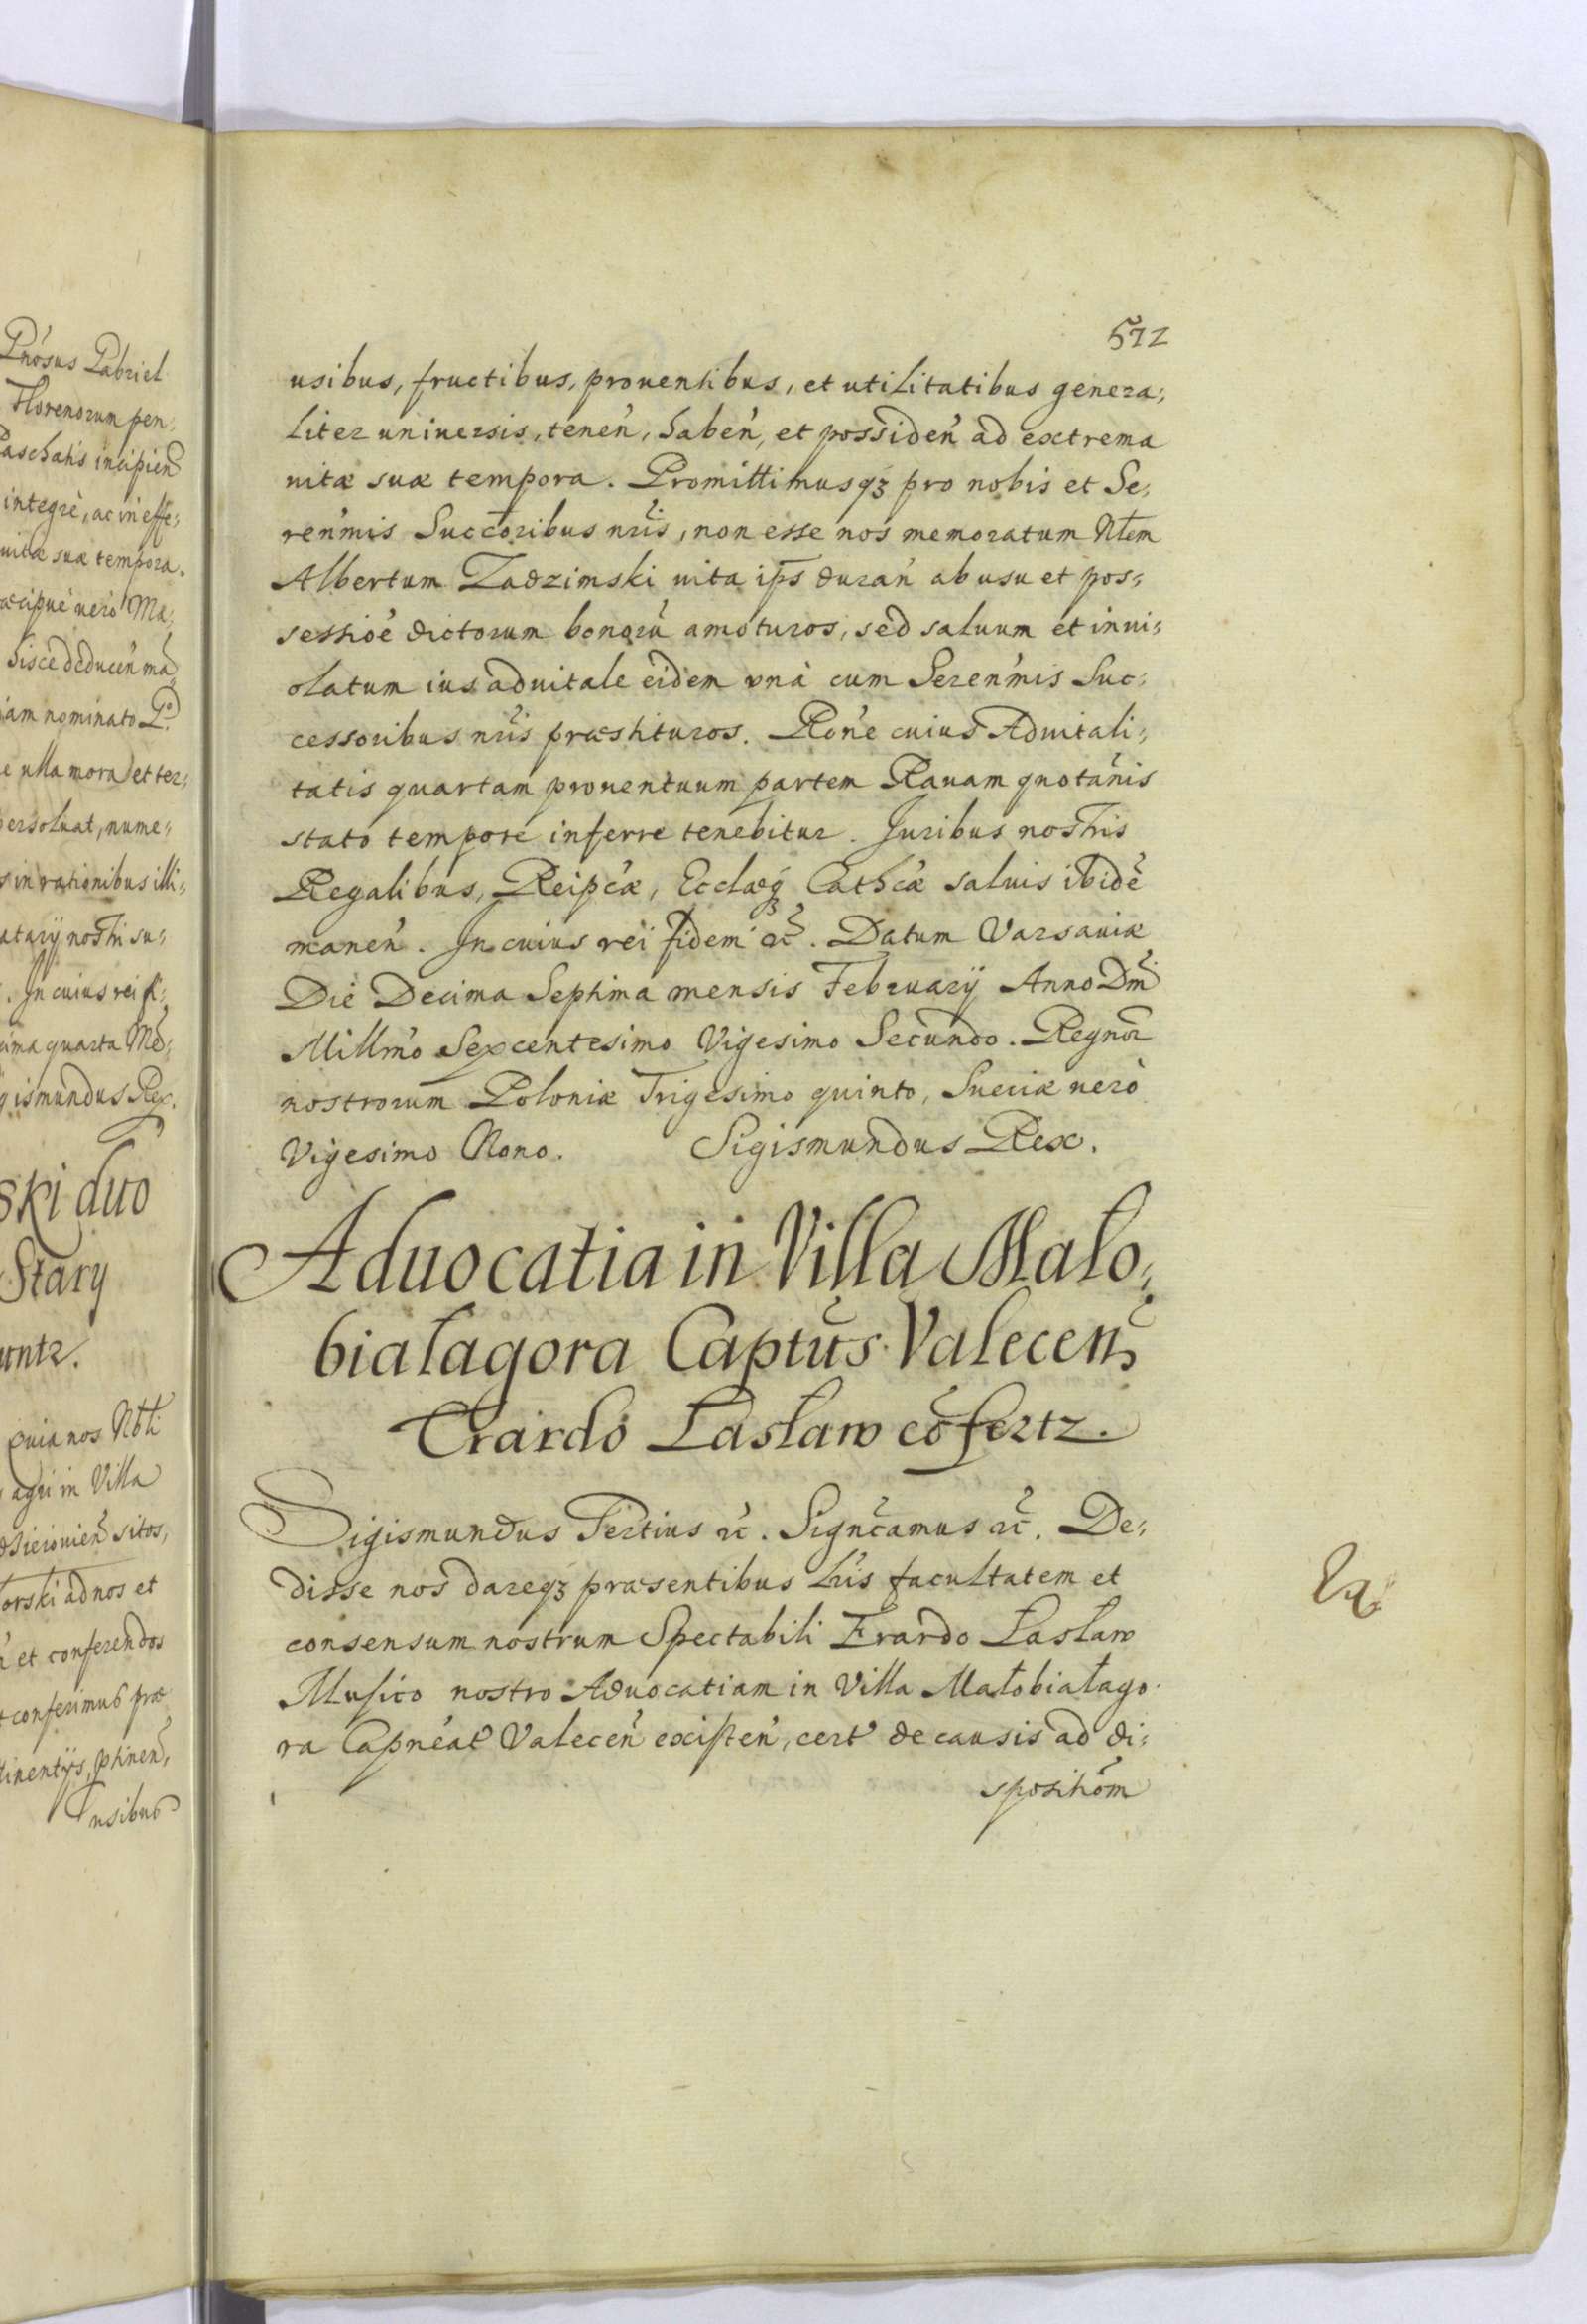 Gnosus Gabriel
Florenorum pen¸
Paschatis incipien̄
integrè, ac in effe¸
uitæ suæ tempora.
ræcipuè uerò Ma¸
hisce deducen̄ mā
iam nominato G.
e ulla mora) et ter¸
ersoluat, nume¸
s in rationibus illi¸
atarij nostri su¸
. In cuius rei fi¸
cima quarta Mē¸
gismundus Rex.
ski duo
Stary
untr.
quia nos Nbli
agri in Villa
sitos,
orski ad nos et
et conferendos
t conferimus præ
tinentijs, ptinen̄,
usibus
572
usibus, fructibus, prouentibus, et utilitatibus genera¸
liter uniuersis, tenen̄, haben̄, et possiden̄ ad extrema
uitæ suæ tempora. Promittimusqꝫ pro nobis et Se¸
ren̄mis Succōribus nr̄is, non esse nos memoratum Nlem
Albertum Zadzimski uita ip̄s durān ab usu et pos¸
sessiōe dictorum bonorū amoturos, sed saluum et inui¸
olatum ius aduitale eidem vnà cum Seren̄mis Suc¸
cessoribus nr̄is præstituros. Rōne cuius Aduitali¸
tatis quartam prouentuum partem Rauam quotānis
stato tempore inferre tenebitur. Juribus nostris
Regalibus, Reipc̄æ, Ecclæqꝫ Cathc̄æ saluis ibidē
manen̄. In cuius rei fidem &c̄. Datum Varsauiæ
Die Decima Septima mensis February Anno Dn̄i
Millm̄o Sexcentesimo Vigesimo Secundo. Regnor̄
nostrorum Poloniæ Trigesimo quinto, Sueciæ uerò
Vigesimo Nono. Sigismundus Rex.
Aduocatia in Villa Mało¸
białagora Captūs Valecen̄
Erardo Lasław cōfertr.
Sigismundus Tertius &c̄. Signc̄amus &c̄. De¸
disse nos dareqꝫ præsentibus lr̄is facultatem et
consensum nostrum Spectabili Erardo Lasław
Musico nostro Aduocatiam in Villa Małobiałago
ra Capnēat Valecen̄ existen̄, cert̄ de causis ad di¸
spositiōm